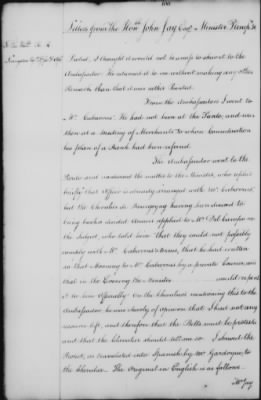 Letters from The Honble John Jay Esqr Minister Plenipo &c
failed, I thought it would not be unsafe to shew it to the
Ambassador. He returned it to me without making any other
Remark than that it was rather Pointed.
From the Ambassadors I went to
Mr Cabarrus. He had not been at the Pardo, and was
then at a Meeting of Merchants to whose Consideration
his plan of a Bank had been referred.
The Ambassador went to the
Pardo and mentioned the matter to the Minister, who replied
briefly that Affair is already arranged with Mr Cabarrus,
but the Chevalier de Bourgoyng having been desired to
bring back a decided Answer applied to Mr Del Campo on
the subject, who told him That they could not possibly
comply with Mr Cabarrus's terms, that he had written
in that Morning to Mr Cabarrus by a private Courier, and
that in the Evening the Minister would repeat
it to him Officially. On the Chevaliers mentioning this to the
Ambassador he was clearly of opinion that I had not any
resource left, and therefore that the Bills must be protested
and that the Chevalier should tell him so. I shewed the
Protest, as translated into Spanish by Mr Gardoqui, to
the Chevalier. The Original in English is as follows.
Mr Jay